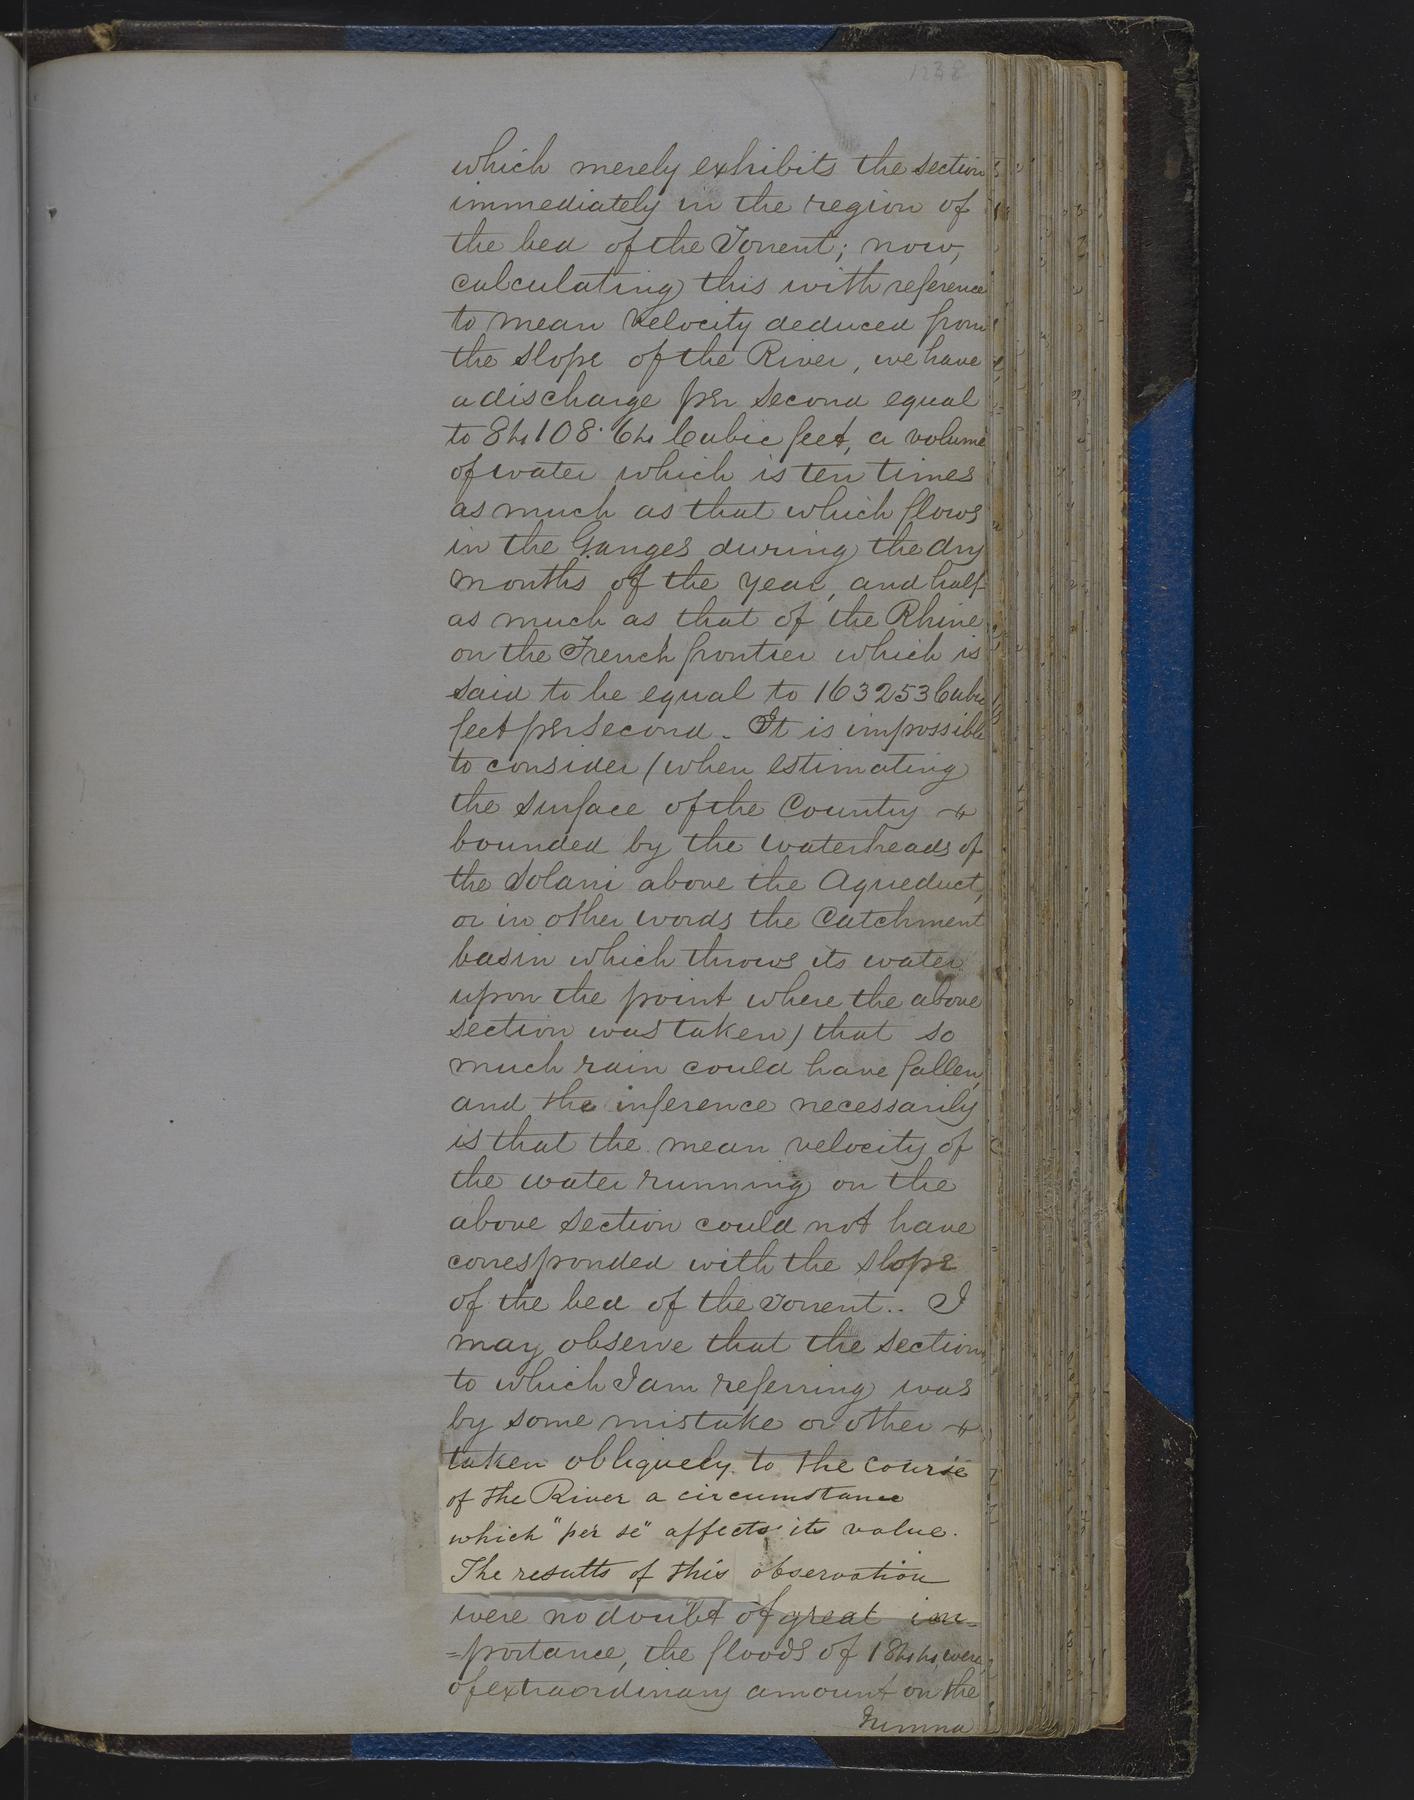 1238
which merely exhibits the section
immediately in the region of
the bed of the Torrent; now,
calculating this with reference
to mean velocity deduced from
the slope of the River, we have
a discharge per second equal
to 84108.64 Cubic feet, a volume
of water which is ten times
as much as that which flows
in the Ganges during the dry
months of the year, and half
as much as that of the Rhine
on the French frontier which is
said to be equal to 163253 Cubic
feet per second. It is impossible
to consider (when estimating
the surface of the Country &
bounded by the waterheads of
the Solani above the Aqueduct,
or in other words the Catchment
basin which throws its water
upon the point where the above
section was taken) that so
much rain could have fallen,
and the inference necessarily
is that the mean velocity of
the water running on the
above section could not have
corresponded with the slope
of the bed of the Torrent.. I
may observe that the section
to which I am referring was
by some mistake or other &
taken obliquely to the course
of the River a circumstance
which "per se" affects its value.
The results of this observation
were no doubt of great im-
=portance, the floods of 1844, were
of extraordinary amount on the
Jumna